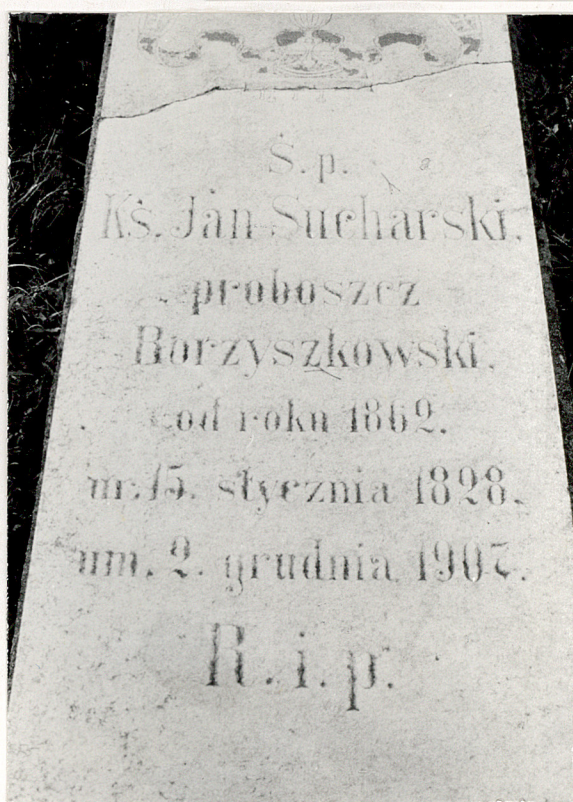 Ś. p.
Ks. Jan Sucharski,
proboszcz
Borzyszkowski.
od roku 1862.
ur. 15. stycznia 1828.
um. 2. grudnia 1907.
R. i. p.